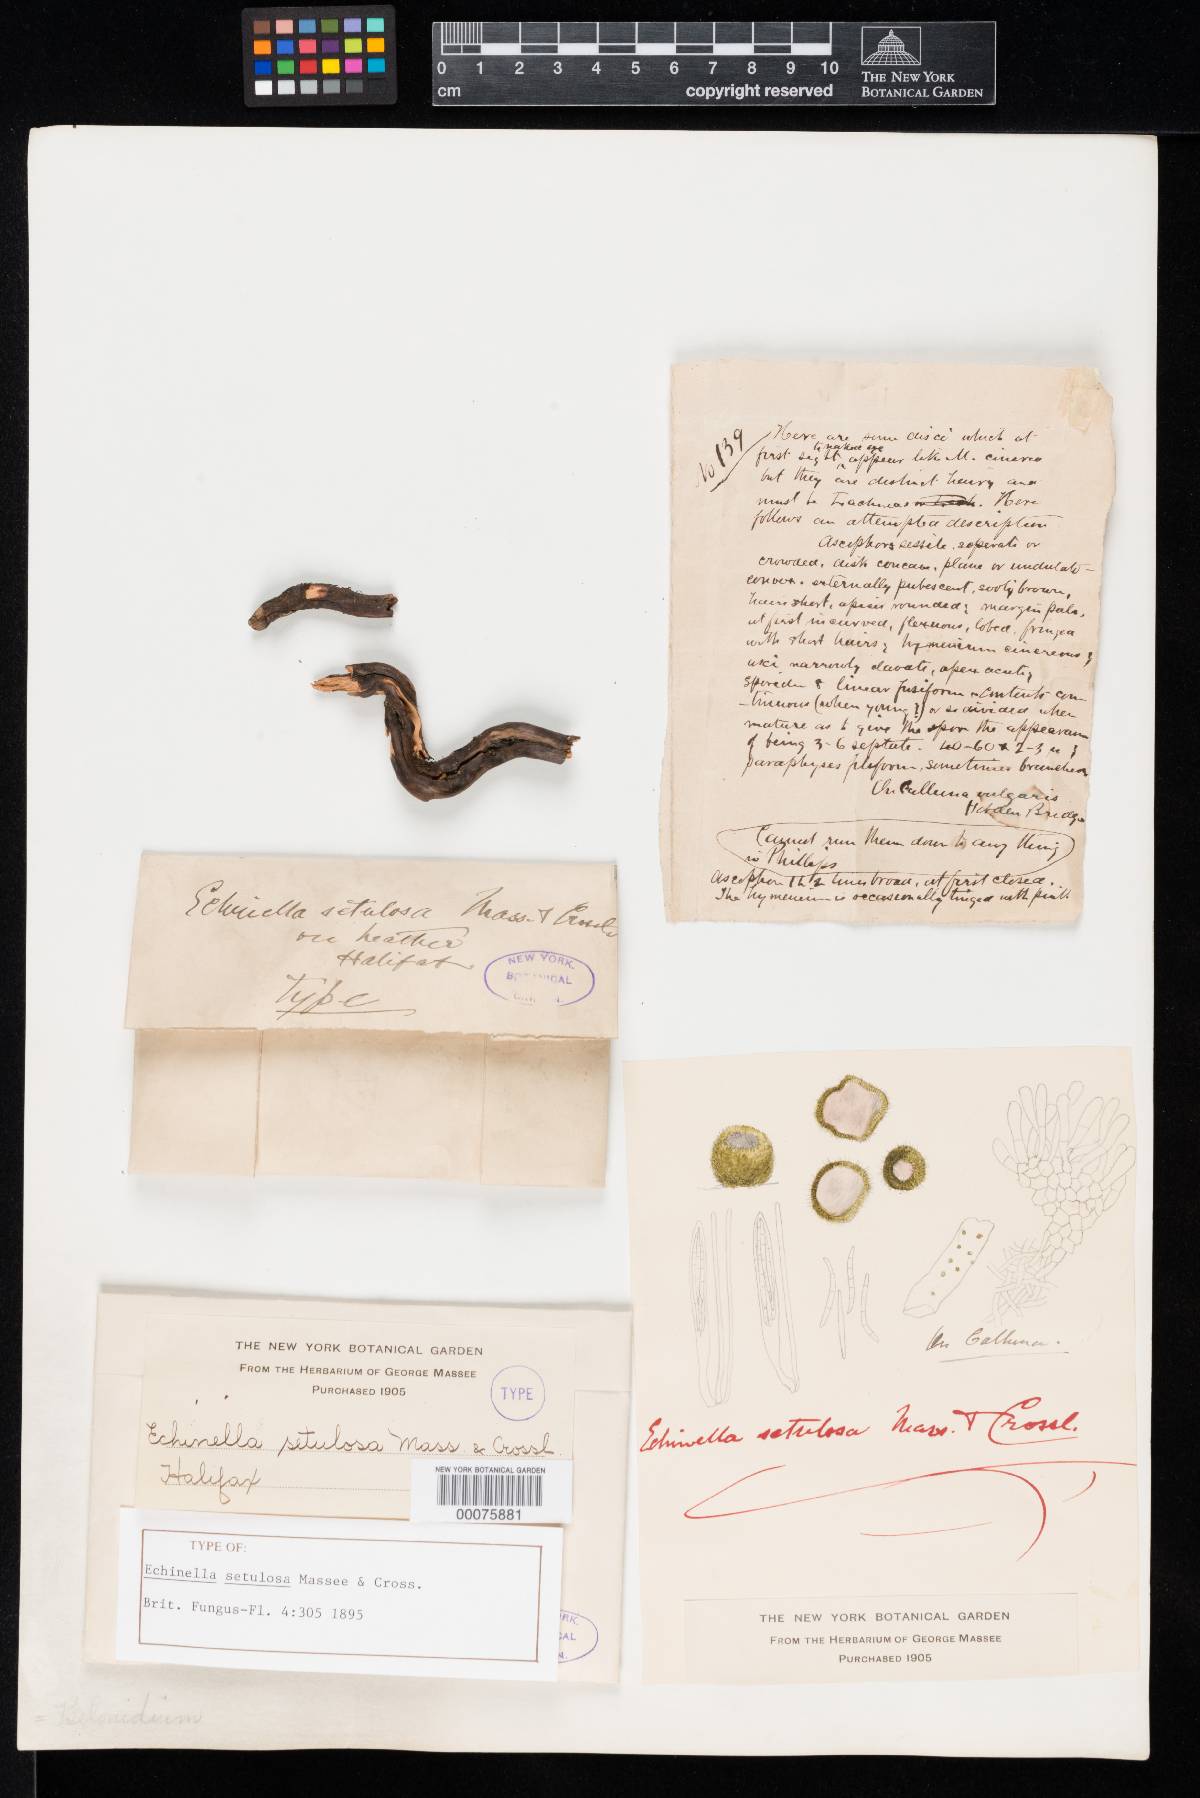 0 1 2 3 4 5 6 7 8 9 10
cm
copyright reserved
THE NEW YORK
BOTANICAL GARDEN
No 139
Here are some disci which at
first sight to naked eye appear like M. cinerea
but they are distinct hairy and
must be
Here
follows an attempted description
Ascophore sessile, seperate or
crowded, disk concave, plane or undulato-
convex. externally pubescent, sooty brown,
hairs short, apices rounded; margin pale,
at first incurved, flexuous, lobed, fringed
with short hairs; hymenium cinereous;
asci narrowly clavate, apex acute;
sporidia 8 linear fusiform contents con-
-tinuous (when young?) or so divided when
mature as to give the spore the appearance
of being 3-6 septate. 40-60 x 2-3 u;
paraphyses filiform, sometimes branched
On Calluna vulgaris
Hebden Bridge
Cannot run them down to any thing
in Phillips
Ascophore 1 lines broad, at first closed.
The hymenium is occasionally tinged with pink
Echinella setulosa Mass. & Crossl.
on heather
Halifax
Type
NEW YORK
BOTANICAL
On Calluna.
Echinella setulosa Mass. & Crossl.
THE NEW YORK BOTANICAL GARDEN
FROM THE HERBARIUM OF GEORGE MASSEE
PURCHASED 1905
THE NEW YORK BOTANICAL GARDEN
FROM THE HERBARIUM OF GEORGE MASSEE
PURCHASED 1905
TYPE
Echinella setulosa Mass. & Crossl.
Halifax
NEW YORK BOTANICAL GARDEN
00075881
TYPE OF:
Echinella setulosa Massee & Cross.
Brit. Fungus-Fl. 4:305 1895
= Belonidium